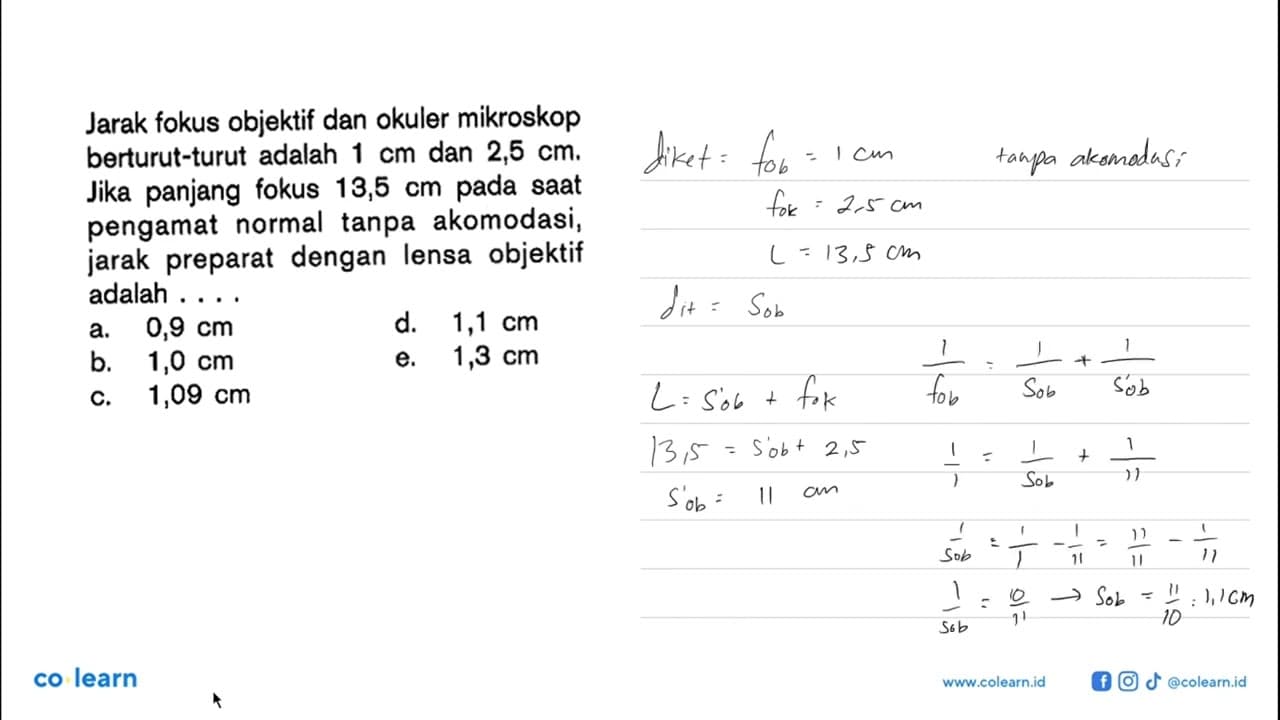 Jarak fokus objektif dan okuler mikroskop
berturut-turut adalah 1 cm dan 2,5 cm.
Jika panjang fokus 13,5 cm pada saat
pengamat normal tanpa akomodasi,
jarak preparat dengan lensa objektif
adalah . . . .
a. 0,9 cm
d. 1,1 cm
b. 1,0 cm
e. 1,3 cm
c. 1,09 cm
diket = fob = 1 cm
tanpa akomodasi
fok = 2,5 cm
L = 13,5 cm
dit = Sob
L = S'ob + fok
13,5 = S'ob + 2,5
S'ob = 11 cm
1/fob = 1/Sob + 1/S'ob
1/1 = 1/Sob + 1/11
1/Sob = 1/1 - 1/11 = 11/11 - 1/11
1/Sob = 10/11 → Sob = 11/10 = 1,1 cm
co learn
www.colearn.id
@colearn.id